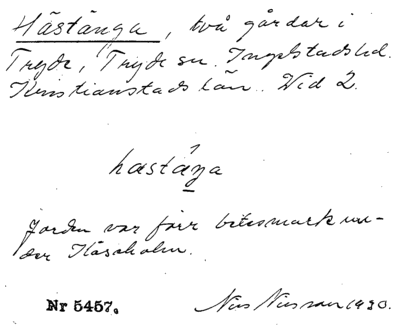 Hästänga, två gårdar i
Tryde, Tryde sn. Ingelstads hd.
Kristianstads län. Vid 2.
hastäŋa
Jorden var förr betesmark un-
der
Nr 5457. Nils Nilsson 1930.